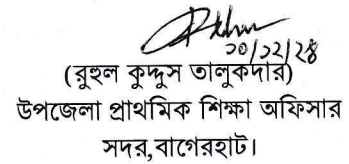 ২০/১২/২৪
(রুহুল কুদ্দুস তালুকদার)
উপজেলা প্রাথমিক শিক্ষা অফিসার
সদর,বাগেরহাট।